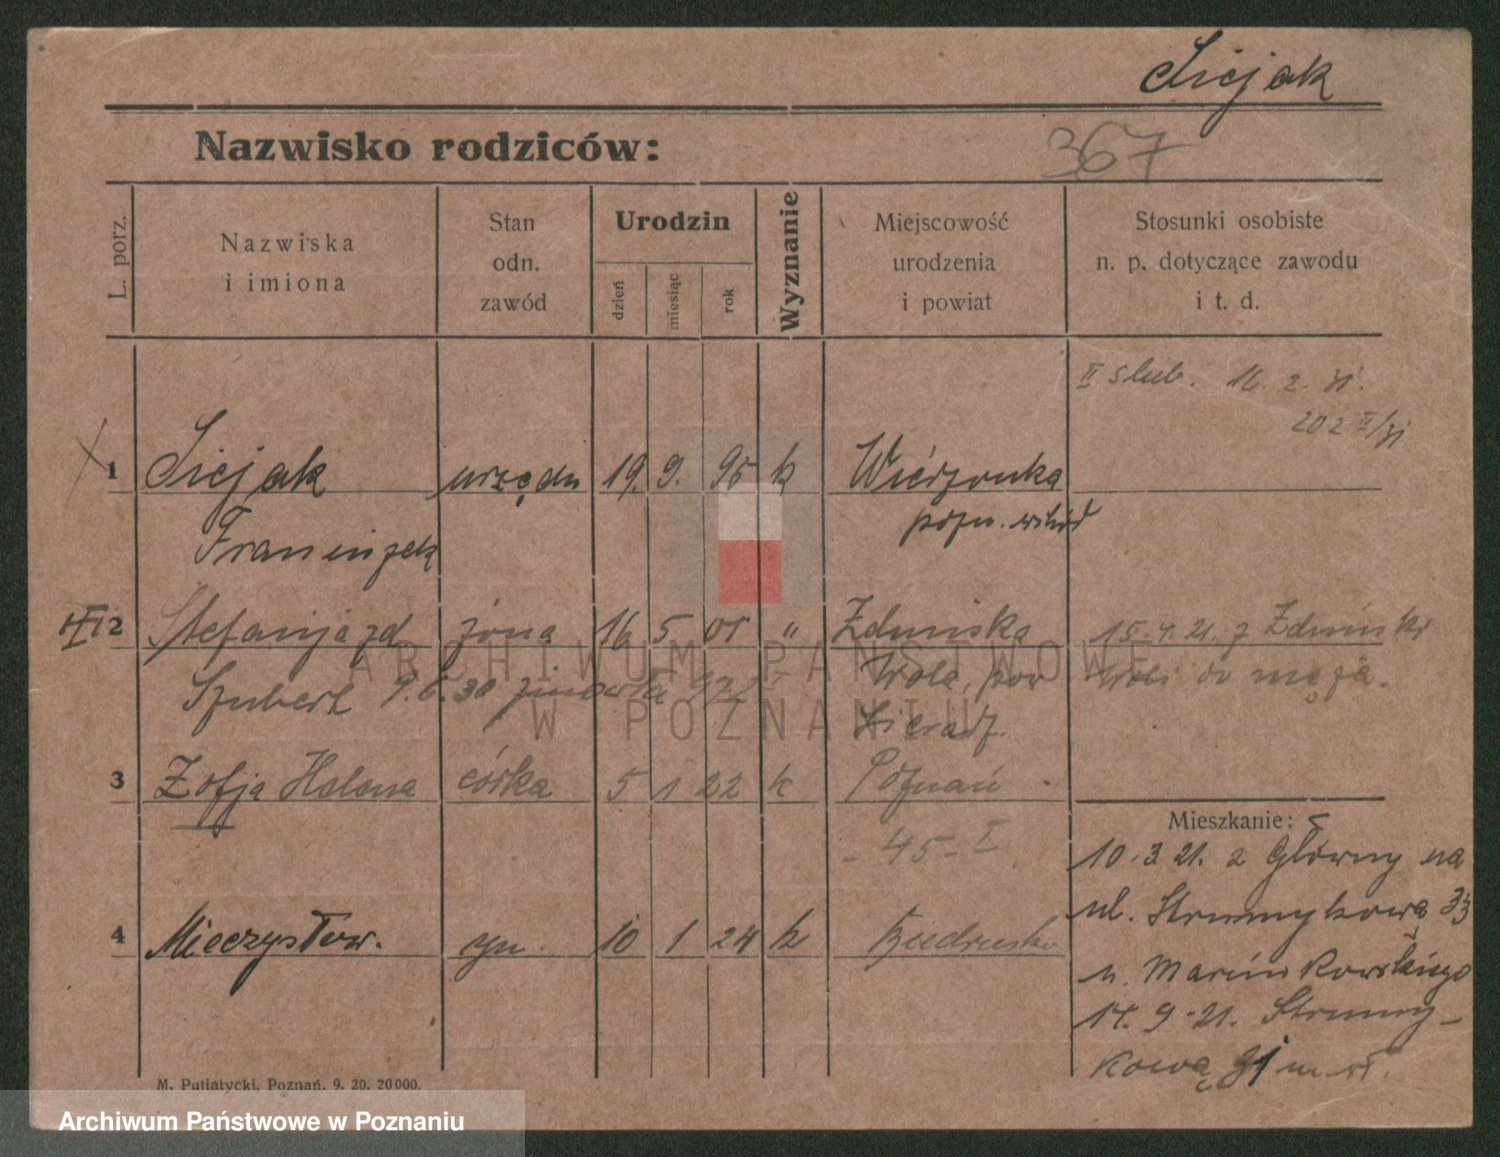 Sicjak
Nazwisko rodziców:
367
L. porz.
Nazwiska
i imiona
Stan
odn.
zawód
Urodzin
dzień
miesiąc
rok
Wyznanie
Miejscowość
urodzenia
i powiat
Stosunki osobiste
n. p. dotyczące zawodu
i t. d.
II slub. 16. 2. 31.
202 II/31
1 Sicjak urzędn 19. 9. 95 k Wierzonka
Franciszek pozn. wschód
2 Stefanja zd żona 16 5 01 " Zduńska 15.4.21. z Zduński
Szubert 9.6.30 zmarła Wola, pow Woli do męża.
Sieradz.
3 Zofja Helena córka 5 1 22 k Poznań
- 45 - I
Mieszkanie:
10.3.21. z Główny na
ul. Strumykową 33
u. Marcinkowskiego
4 Mieczysław. syn 10 1 24 k Biedrusko
14.9.21. Strumy-
kową 31
M. Putiatycki, Poznań. 9. 20. 20000.
ARCHIWUM PAŃSTWOWE
W POZNANIU
Archiwum Państwowe w Poznaniu